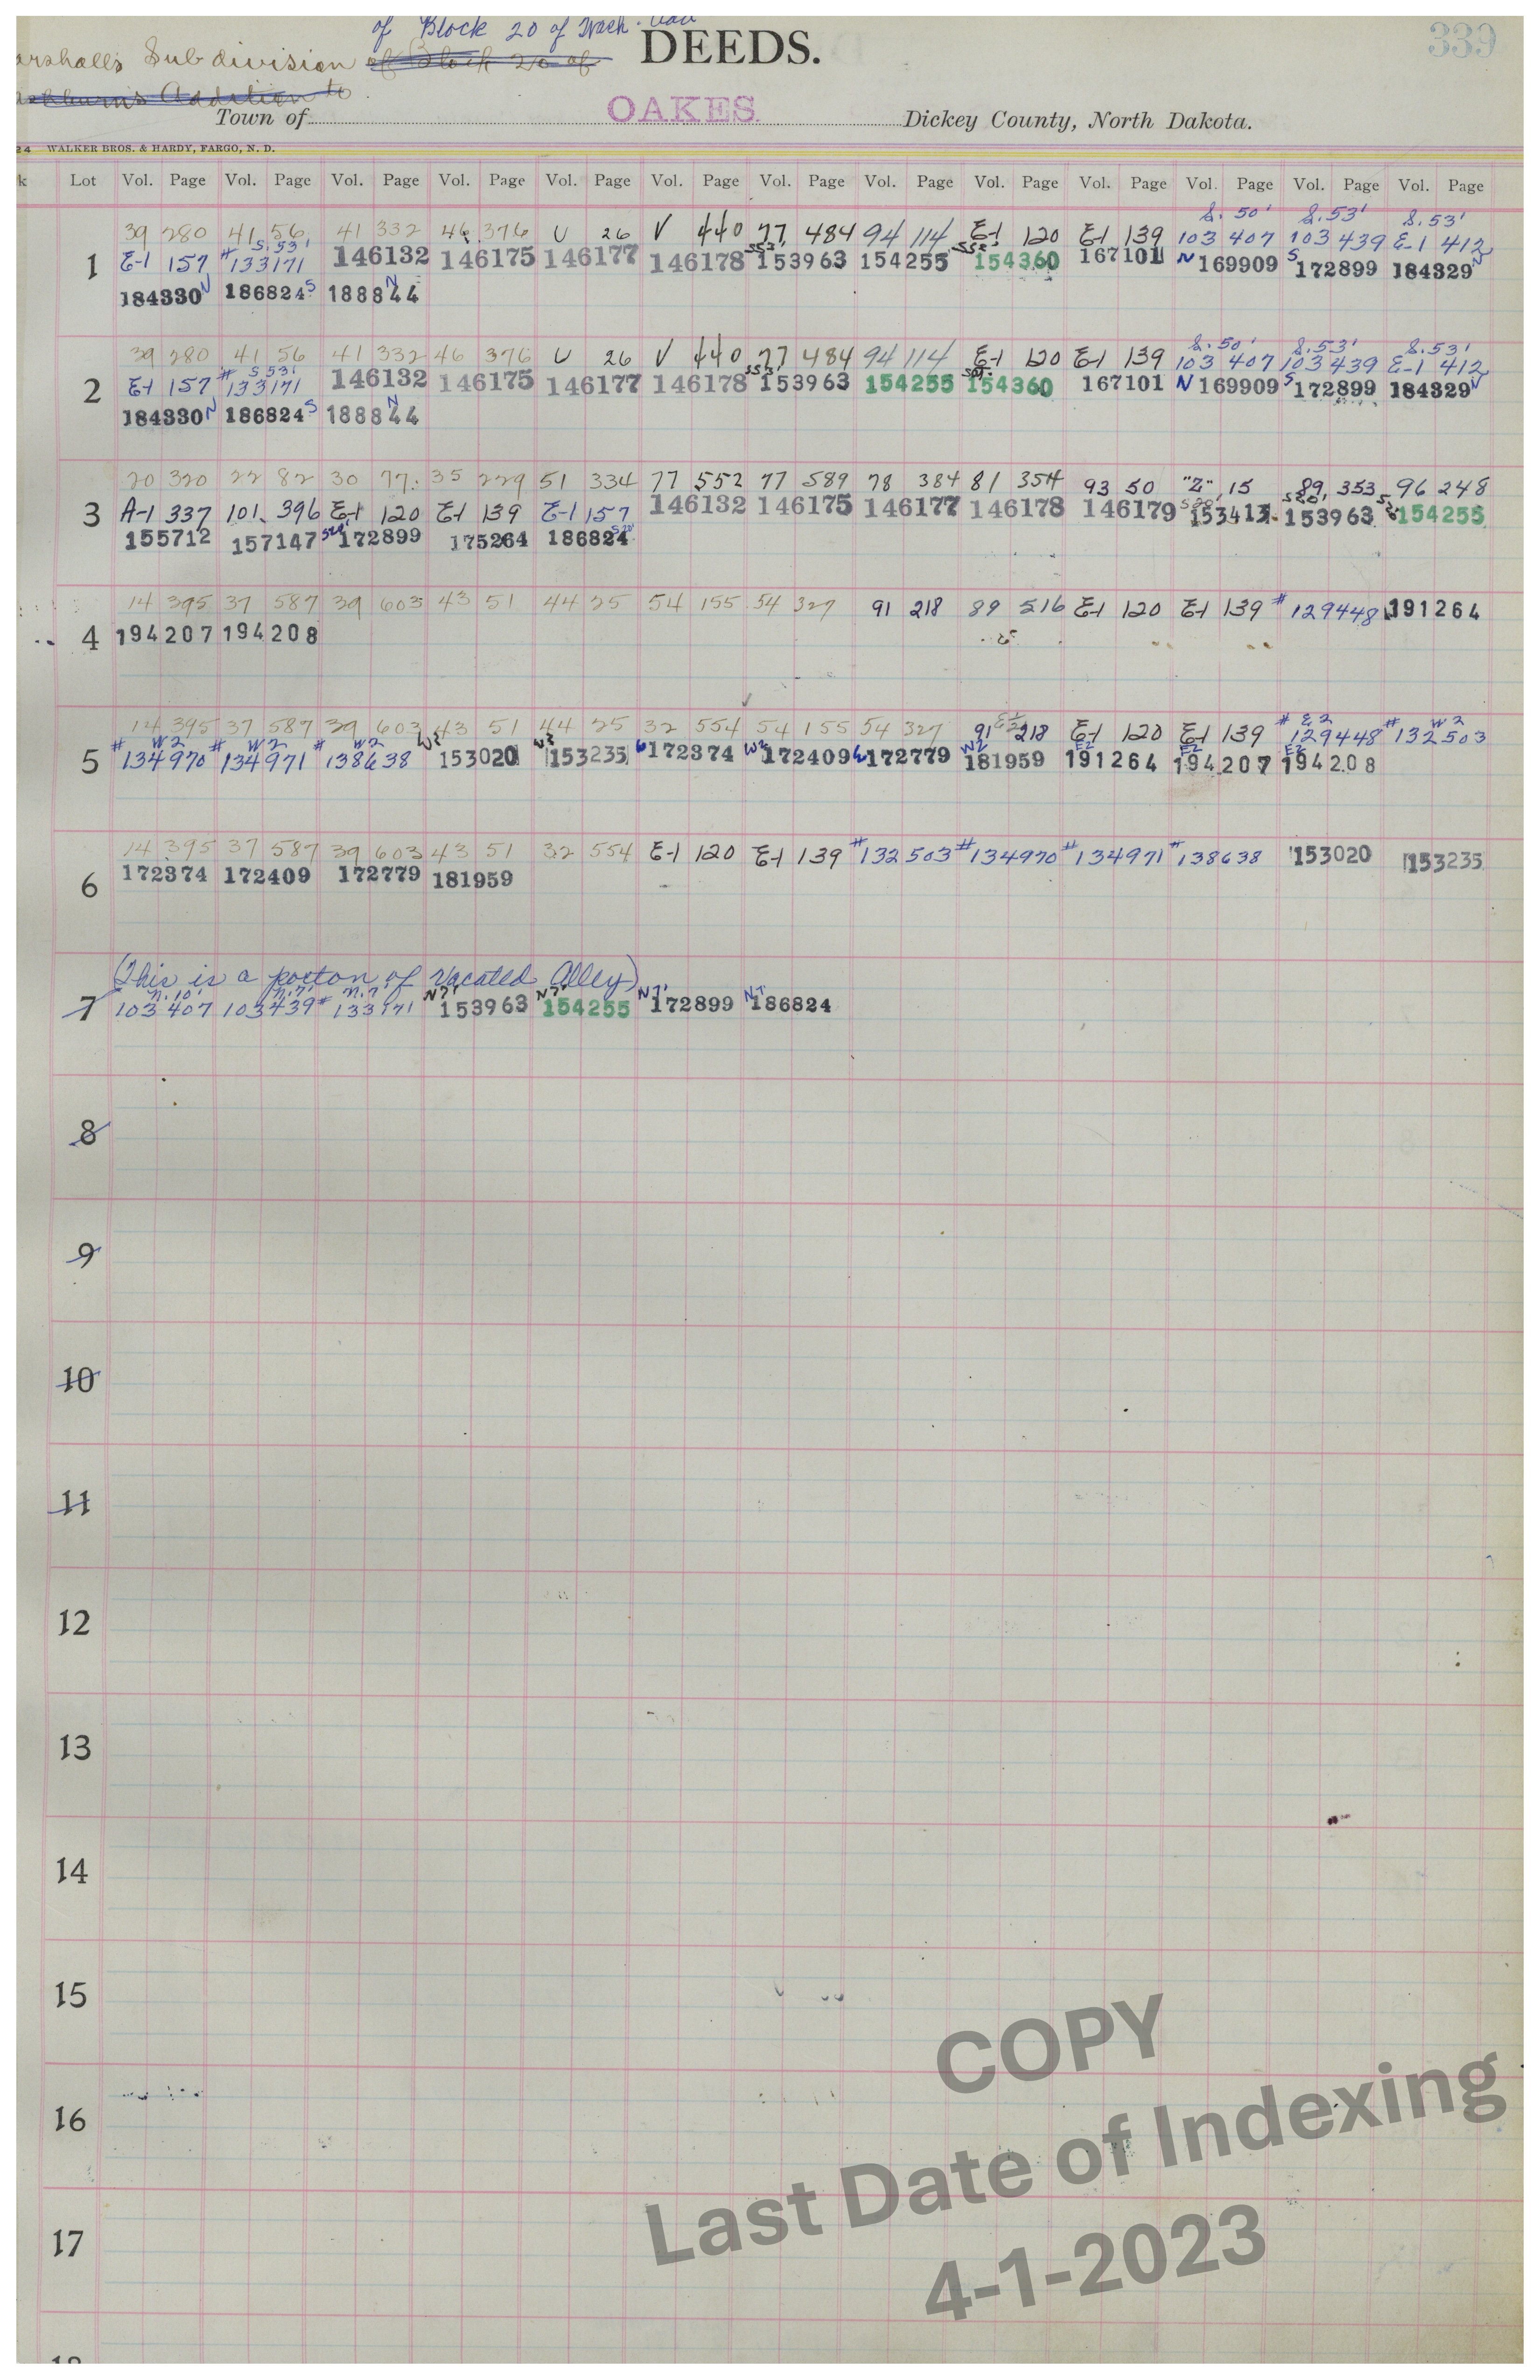 of Block 20 of Wash. Add
DEEDS.
339
arshall's Subdivision of Block 20 of
ashburn's Addition to
Town of OAKES Dickey County, North Dakota.
24 WALKER BROS. & HARDY, FARGO, N. D.
k Lot Vol. Page Vol. Page Vol. Page Vol. Page Vol. Page Vol. Page Vol. Page Vol. Page Vol. Page Vol. Page Vol. Page Vol. Page Vol. Page
S. 50' S. 53' S. 53'
39 280 41 56 41 332 46 376 U 26 V 440 77 484 94 114 E-1 120 E-1 139 103 407 103 439 E-1 412
S. 53' S53' S52'
1 E-1 157 #133171 146132 146175 146177 146178 153963 154255 154360 167101 N 169909 S 172899 184329 N
184330 N 186824 S 188844 N
S. 50' S. 53' S. 53'
39 280 41 56 41 332 46 376 U 26 V 440 77 484 94 114 E-1 120 E-1 139 103 407 103 439 E-1 412
S 53' S53'
2 E-1 157 #133171 146132 146175 146177 146178 153963 154255 154360 167101 N 169909 S 172899 184329 N
184330 N 186824 S 188844 N
20 320 22 82 30 77 35 229 51 334 77 552 77 589 78 384 81 354 93 50 "Z" 15 89 353 96 248
3 A-1 337 101 396 E-1 120 E-1 139 E-1 157 146132 146175 146177 146178 146179 153413 153963 154255
155712 157147 S20' 172899 175264 186824 S20'
14 395 37 587 39 603 43 51 44 25 54 155 54 327 91 218 89 516 E-1 120 E-1 139 #129448 191264
4 194207 194208
E½ # E2 # W2
14 395 37 587 39 603 43 51 44 25 32 554 54 155 54 327 91 218 E-1 120 E-1 139 129448 132503
# W2 # W2 # W2 W½ W½ W½ W2 E2 E2 E2
5 134970 134971 138638 153020 153235 172374 172409 172779 181959 191264 194207 194208
14 395 37 587 39 603 43 51 32 554 E-1 120 E-1 139 #132503 #134970 #134971 #138638 153020 153235
6 172374 172409 172779 181959
(This is a porton of Vacated Alley)
N. 10' N. 7' N. 7' N7' N7' N7' N7'
7 103 407 103 439 #133171 153963 154255 172899 186824
8
9
10
11
12
13
14
15
16
17
COPY
Last Date of Indexing
4-1-2023